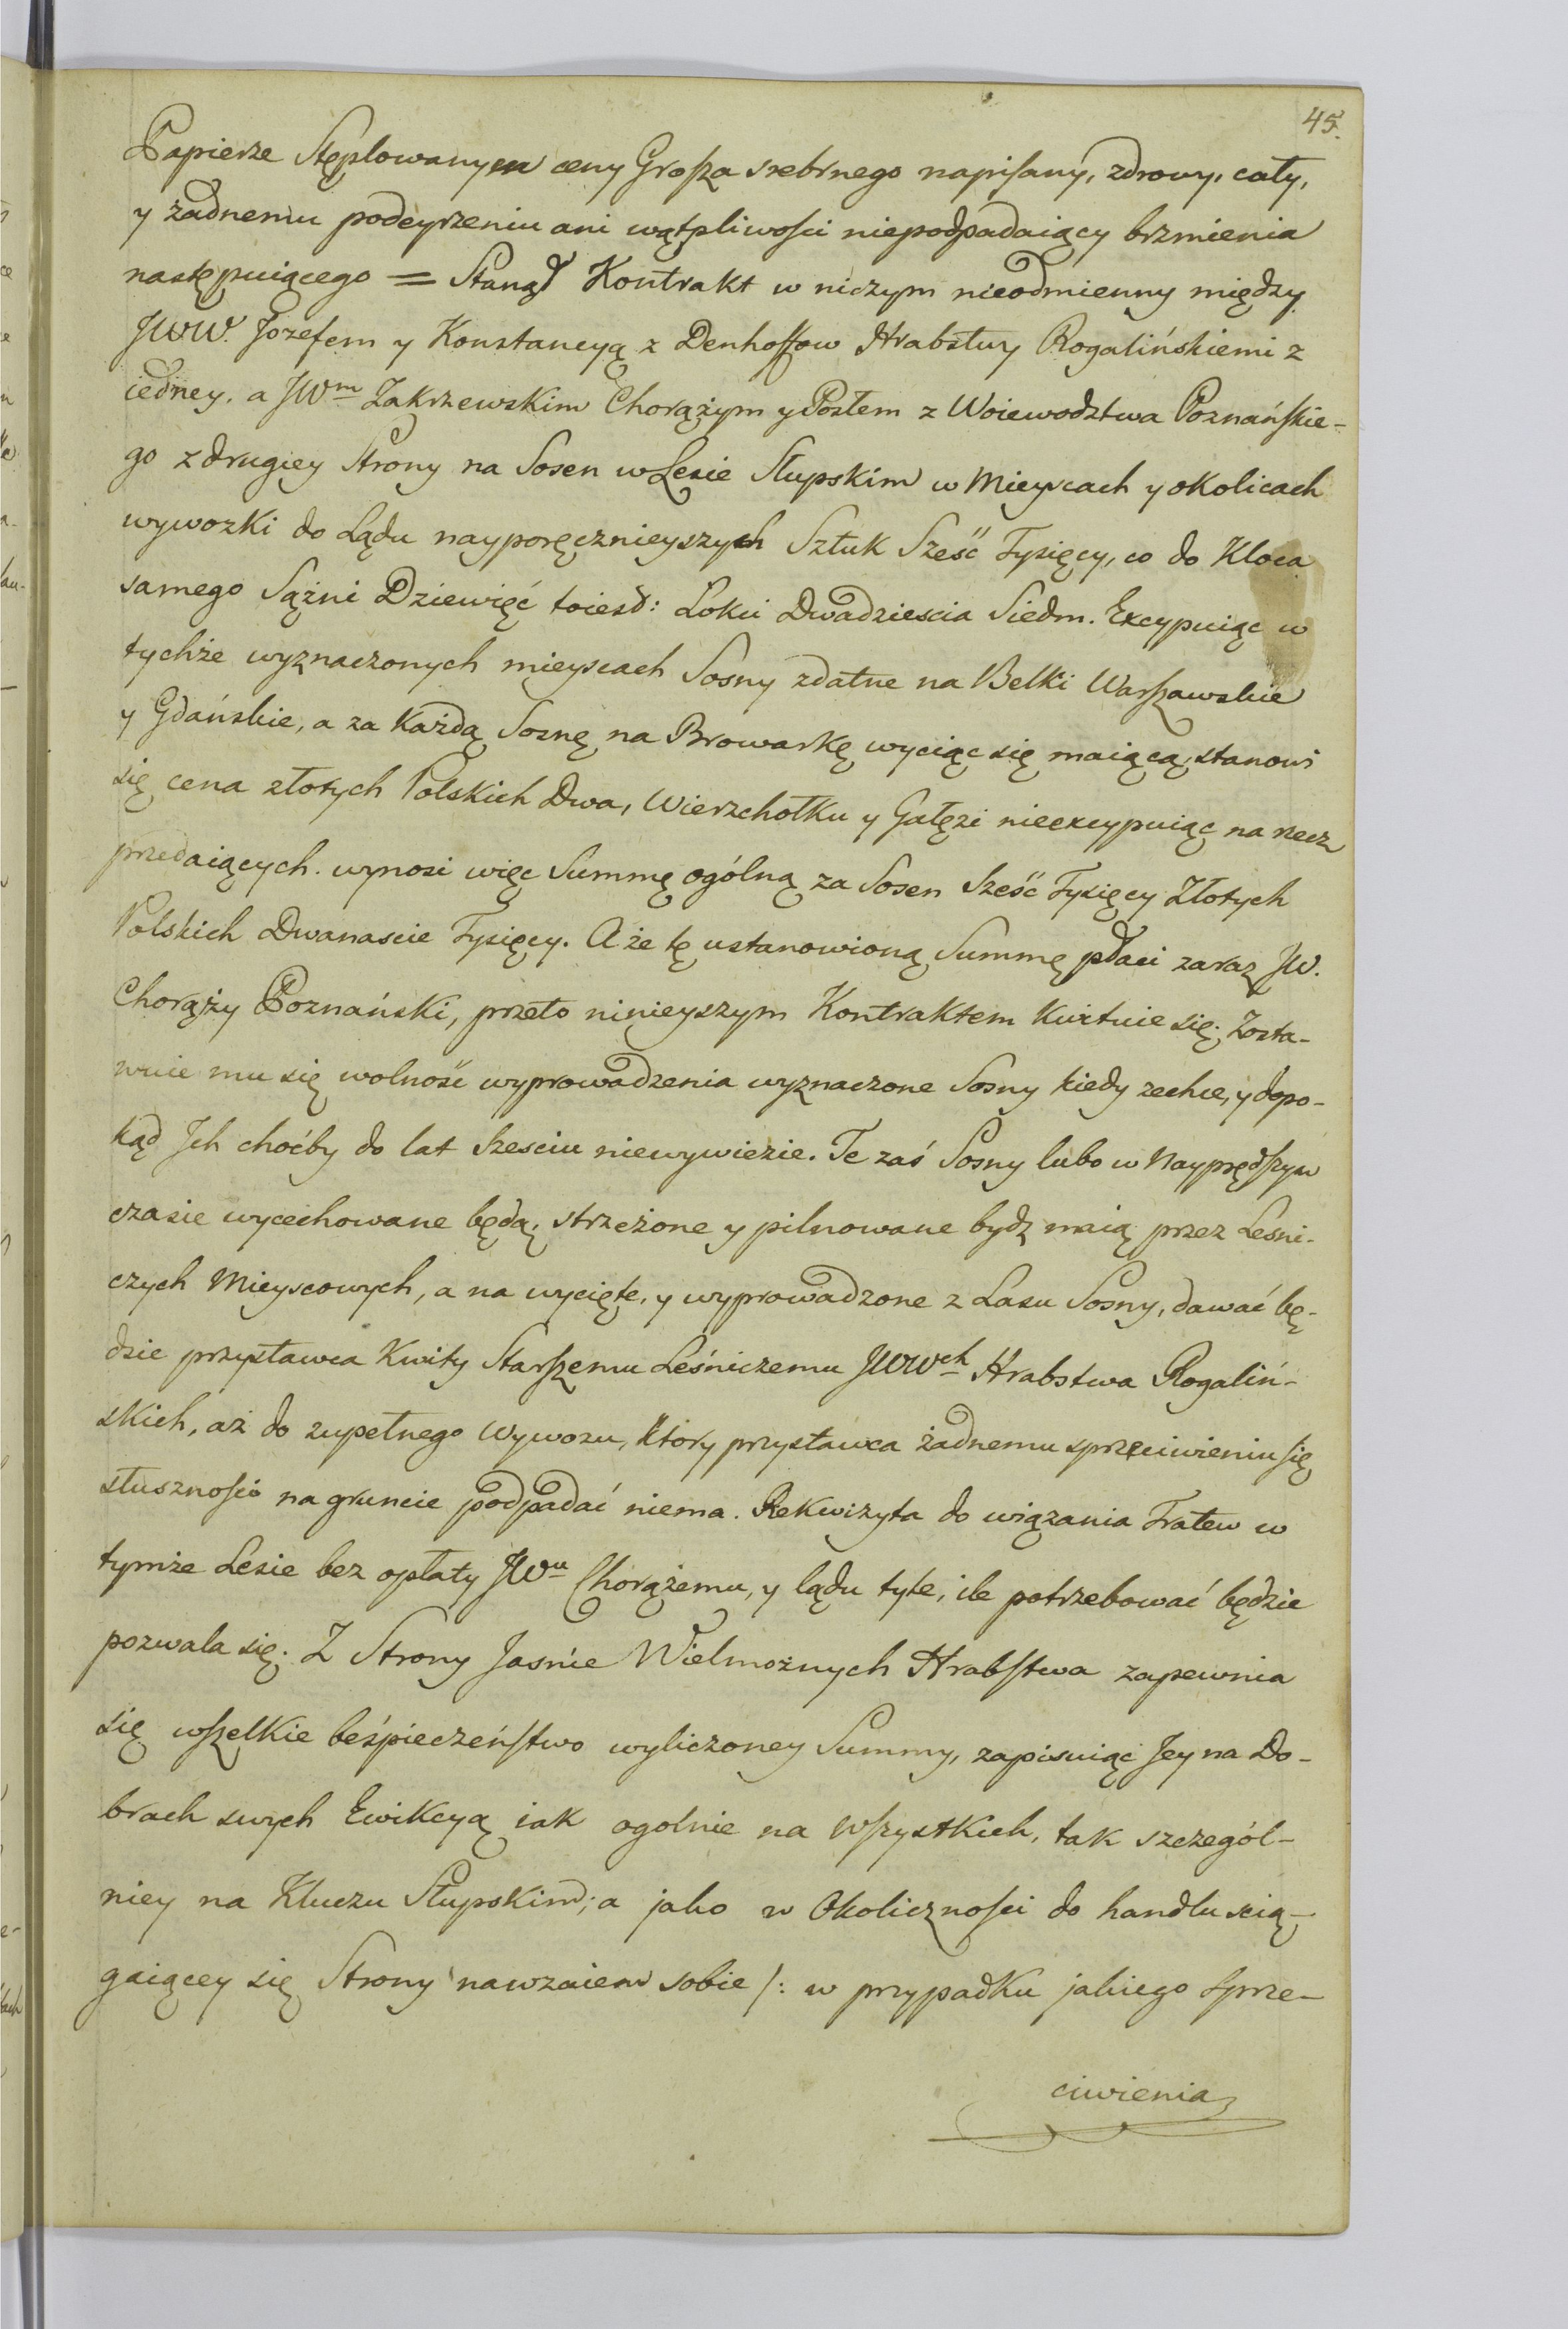 45.
Papierze Stęplowanym ceny Grosza srebrnego napisany, zdrowy, cały,
y żadnemu podeyrzeniu ani wątpliwości niepodpadaiący brzmienia
następuiącego = Stanął Kontrakt w niczym nieodmienny między
JWW. Jozefem y Konstancyą z Denhoffow Hrabstwy Rogalińskiemi z
iedney, a JWm Zakrzewskim Chorążym y Posłem z Woiewodztwa Poznańskie-
go z drugiey Strony na Sosen w Lesie Słupskim w Mieyscach y okolicach
wywozki do Lądu nayporęcznieyszych Sztuk Sześć Tysięcy, co do Kloca
samego Sążni Dziewięć toiesd: Łokci Dwadziescia Siedm. Excypuiąc w
tychże wyznaczonych mieyscach Sosny zdatne na Belki Warszawskie
y Gdańskie, a za Każdą Sosnę na Browarkę wyciąc się maiącą, stanowi
się cena złotych Polskich Dwa, Wierzchołku y Gałęzi nieexcypuiąc na rzecz
przedaiących. wynosi więc Summę ogólną za Sosen Sześć Tysięcy Złotych
Polskich Dwanascie Tysięcy. A że tę ustanowioną Summę płaci zaraz JW.
Chorąży Poznański, przeto ninieyszym Kontraktem Kwituie się. Zosta-
wuie mu się wolność wyprowadzenia wyznaczone Sosny kiedy zechce, y dopo-
kąd Jch choćby do lat szesciu niewywiezie. Te zaś Sosny lubo w Nayprędszym
czasie wycechowane będą, strzeżone y pilnowane bydz maią przez Lesni-
czych Mieyscowych, a na wycięte, y wyprowadzone z Lasu Sosny, dawać bę-
dzie przystawca Kwity Starszemu Leśniczemu JWWch Hrabstwa Rogaliń-
skich, aż do zupełnego Wywozu, Który przystawca żadnemu sprzeciwieniu się
słuszności na gruncie podpadać niema. Rekwizyta do wiązania Tratew w
tymże Lesie bez opłaty JWu Chorążemu, y lądu tyle, ile potrzebować będzie
pozwala się. Z Strony Jaśnie Wielmożnych Hrabstwa zapewnia
się wszelkie beśpieczeństwo wyliczoney Summy, zapisuiąc Jey na Do-
brach swych Ewikcyą iak ogolnie na Wszystkich, tak szczegól-
niey na Kluczu Słupskim; a jako w Okoliczności do handlu scią-
gaiącey się Strony nawzaiem sobie /: w przypadku jakiego sprze-
ciwienia